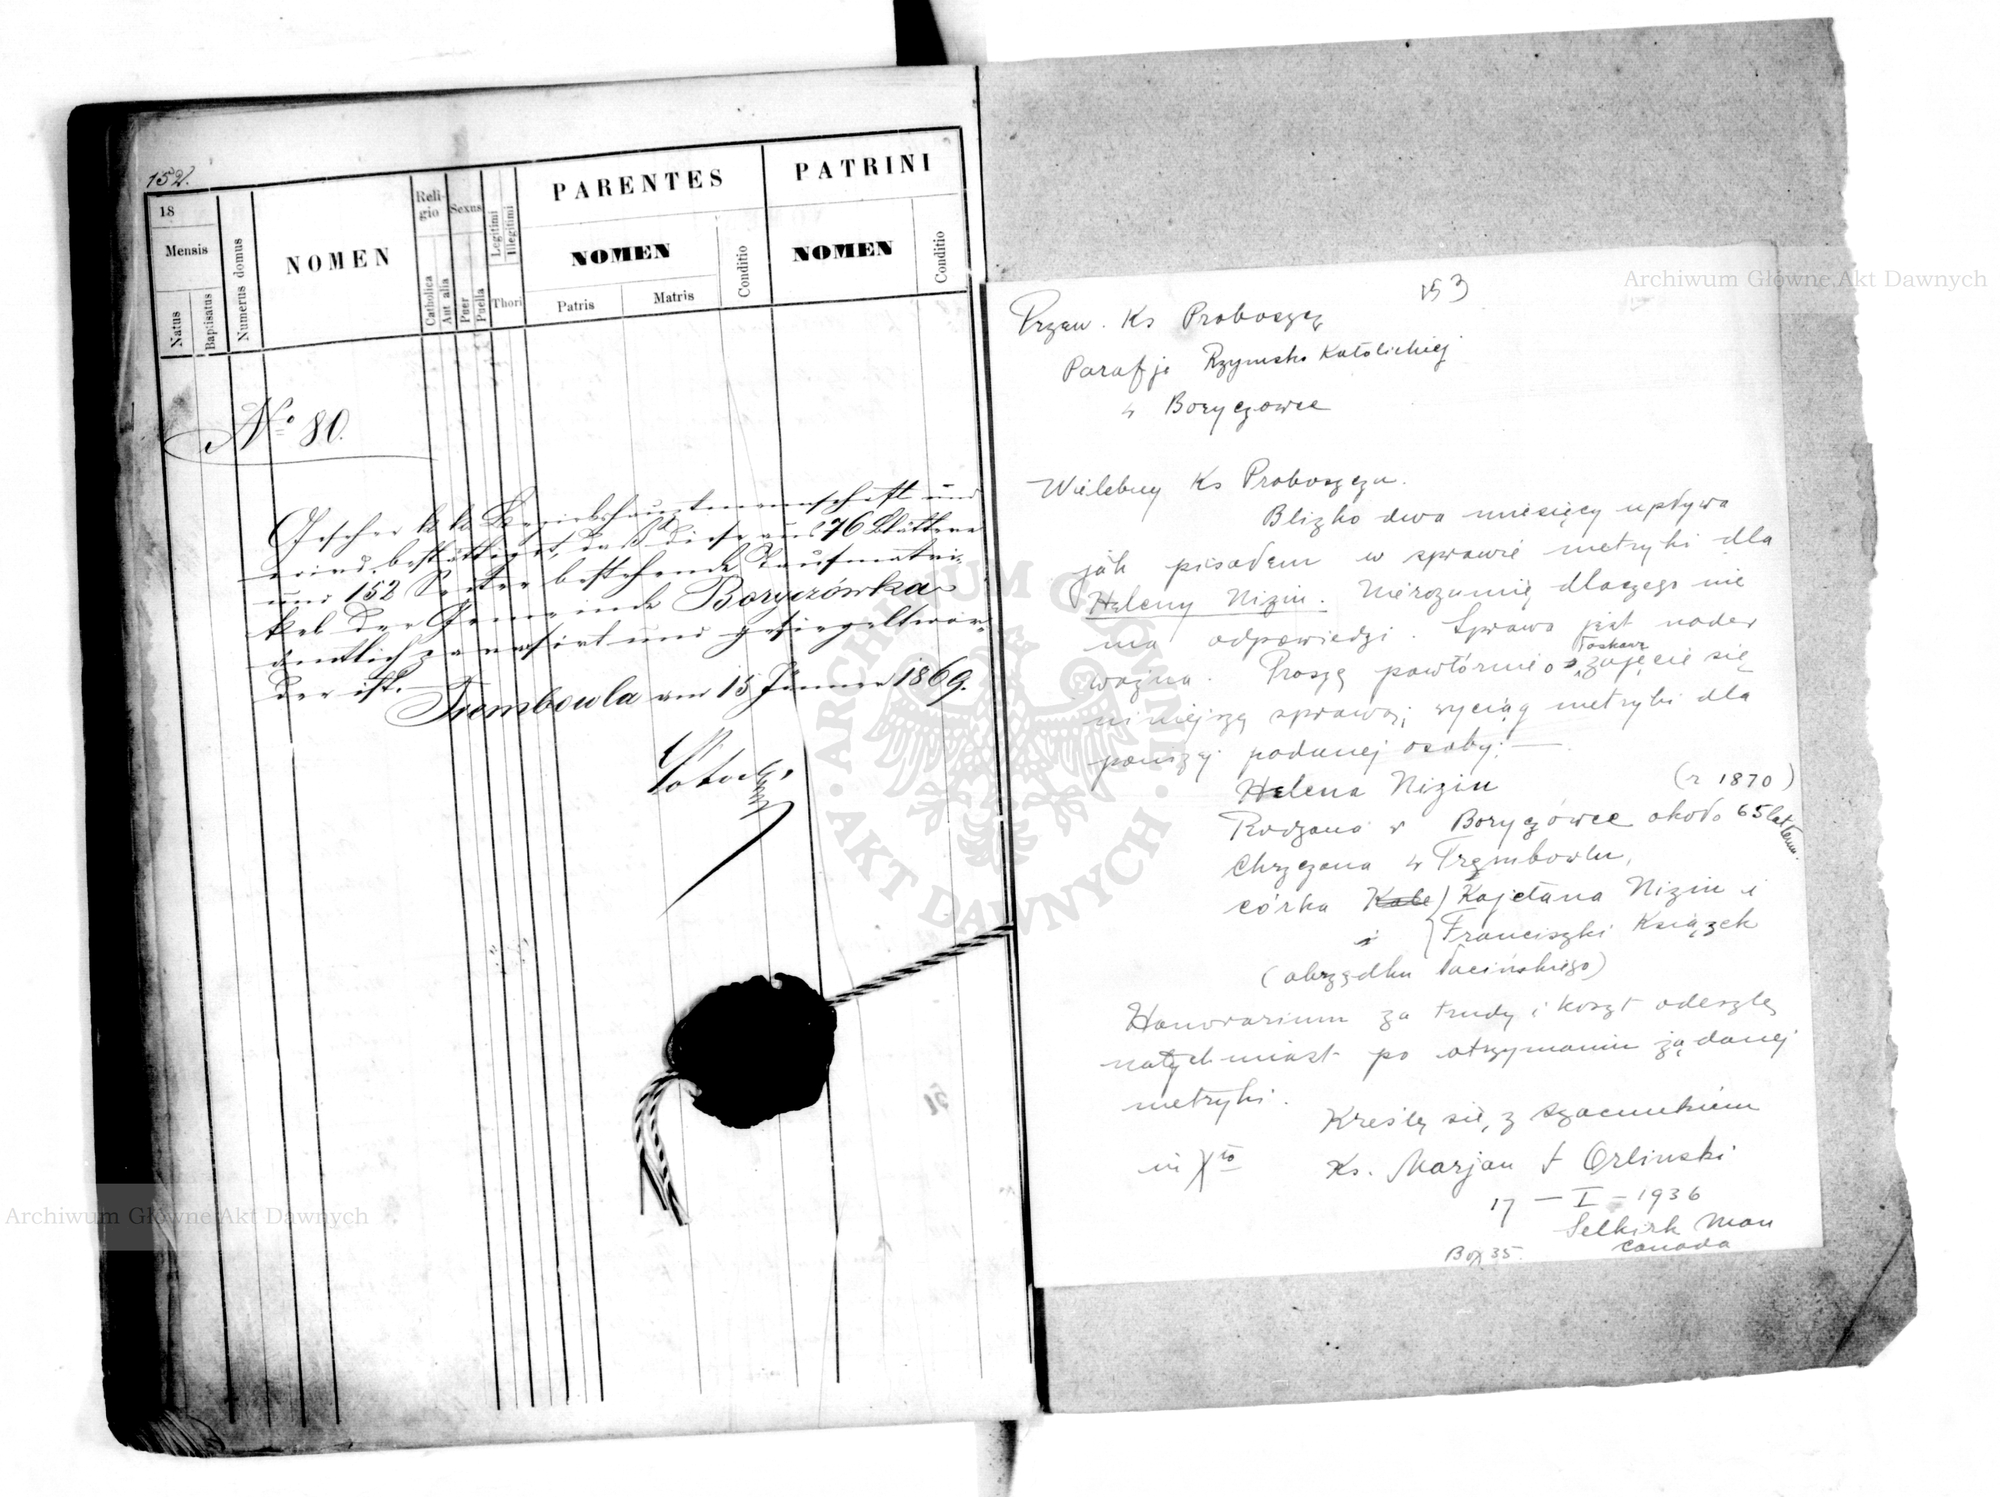 152.
18
Mensis
Natus
Baptisatus
Numerus domus
NOMEN
Religio
Catholica
Aut alia
Sexus
Puer
Puella
Legitimi
Illegitimi
Thori
PARENTES
NOMEN
Patris
Matris
Conditio
PATRINI
NOMEN
Conditio
No 80.
k k Bezirkshauptmannschaft und
wird bestättiget, daß diese aus 76 Blättern
und 152 Seiten bestehende Taufmatri-
kel der Gemeinde Boryczówka
ämtlich und gesiegelt wor-
den ist.
Trembowla am 15 Jänner 1869.
153
Przew. Ks Proboszcz
Parafji Rzymsko Katolickiej
w Boryczowce
Wielebny Ks Proboszczu.
Blizko dwa miesięcy upływa
jak pisałem w sprawie metryki dla
Heleny Nizin. Nierozumię dlaczego nie
ma odpowiedzi. Sprawa jest nader
ważna. Proszę powtórnie o łaskawe zajęcie się
niniejszą sprawą; wyciąg metryki dla
poniżej podanej osoby: —
Helena Nizin (r 1870)
Rodzona w Boryczówce około 65 lat temu.
Chrzczona w Trembowlu,
córka Kajetana Nizin i
i Franciszki Książek
(obrządku łacińskiego)
Honorarium za trudy i koszt odeszlę
natychmiast po otrzymaniu żądanej
metryki.
Kreślę się, z szacunkiem
in Xto Ks. Marjan J Orlinski
17 — I — 1936
Selkirk Man
Box 35. Canada
ARCHIWUM GŁÓWNE AKT DAWNYCH
Archiwum Główne Akt Dawnych
Archiwum Główne Akt Dawnych